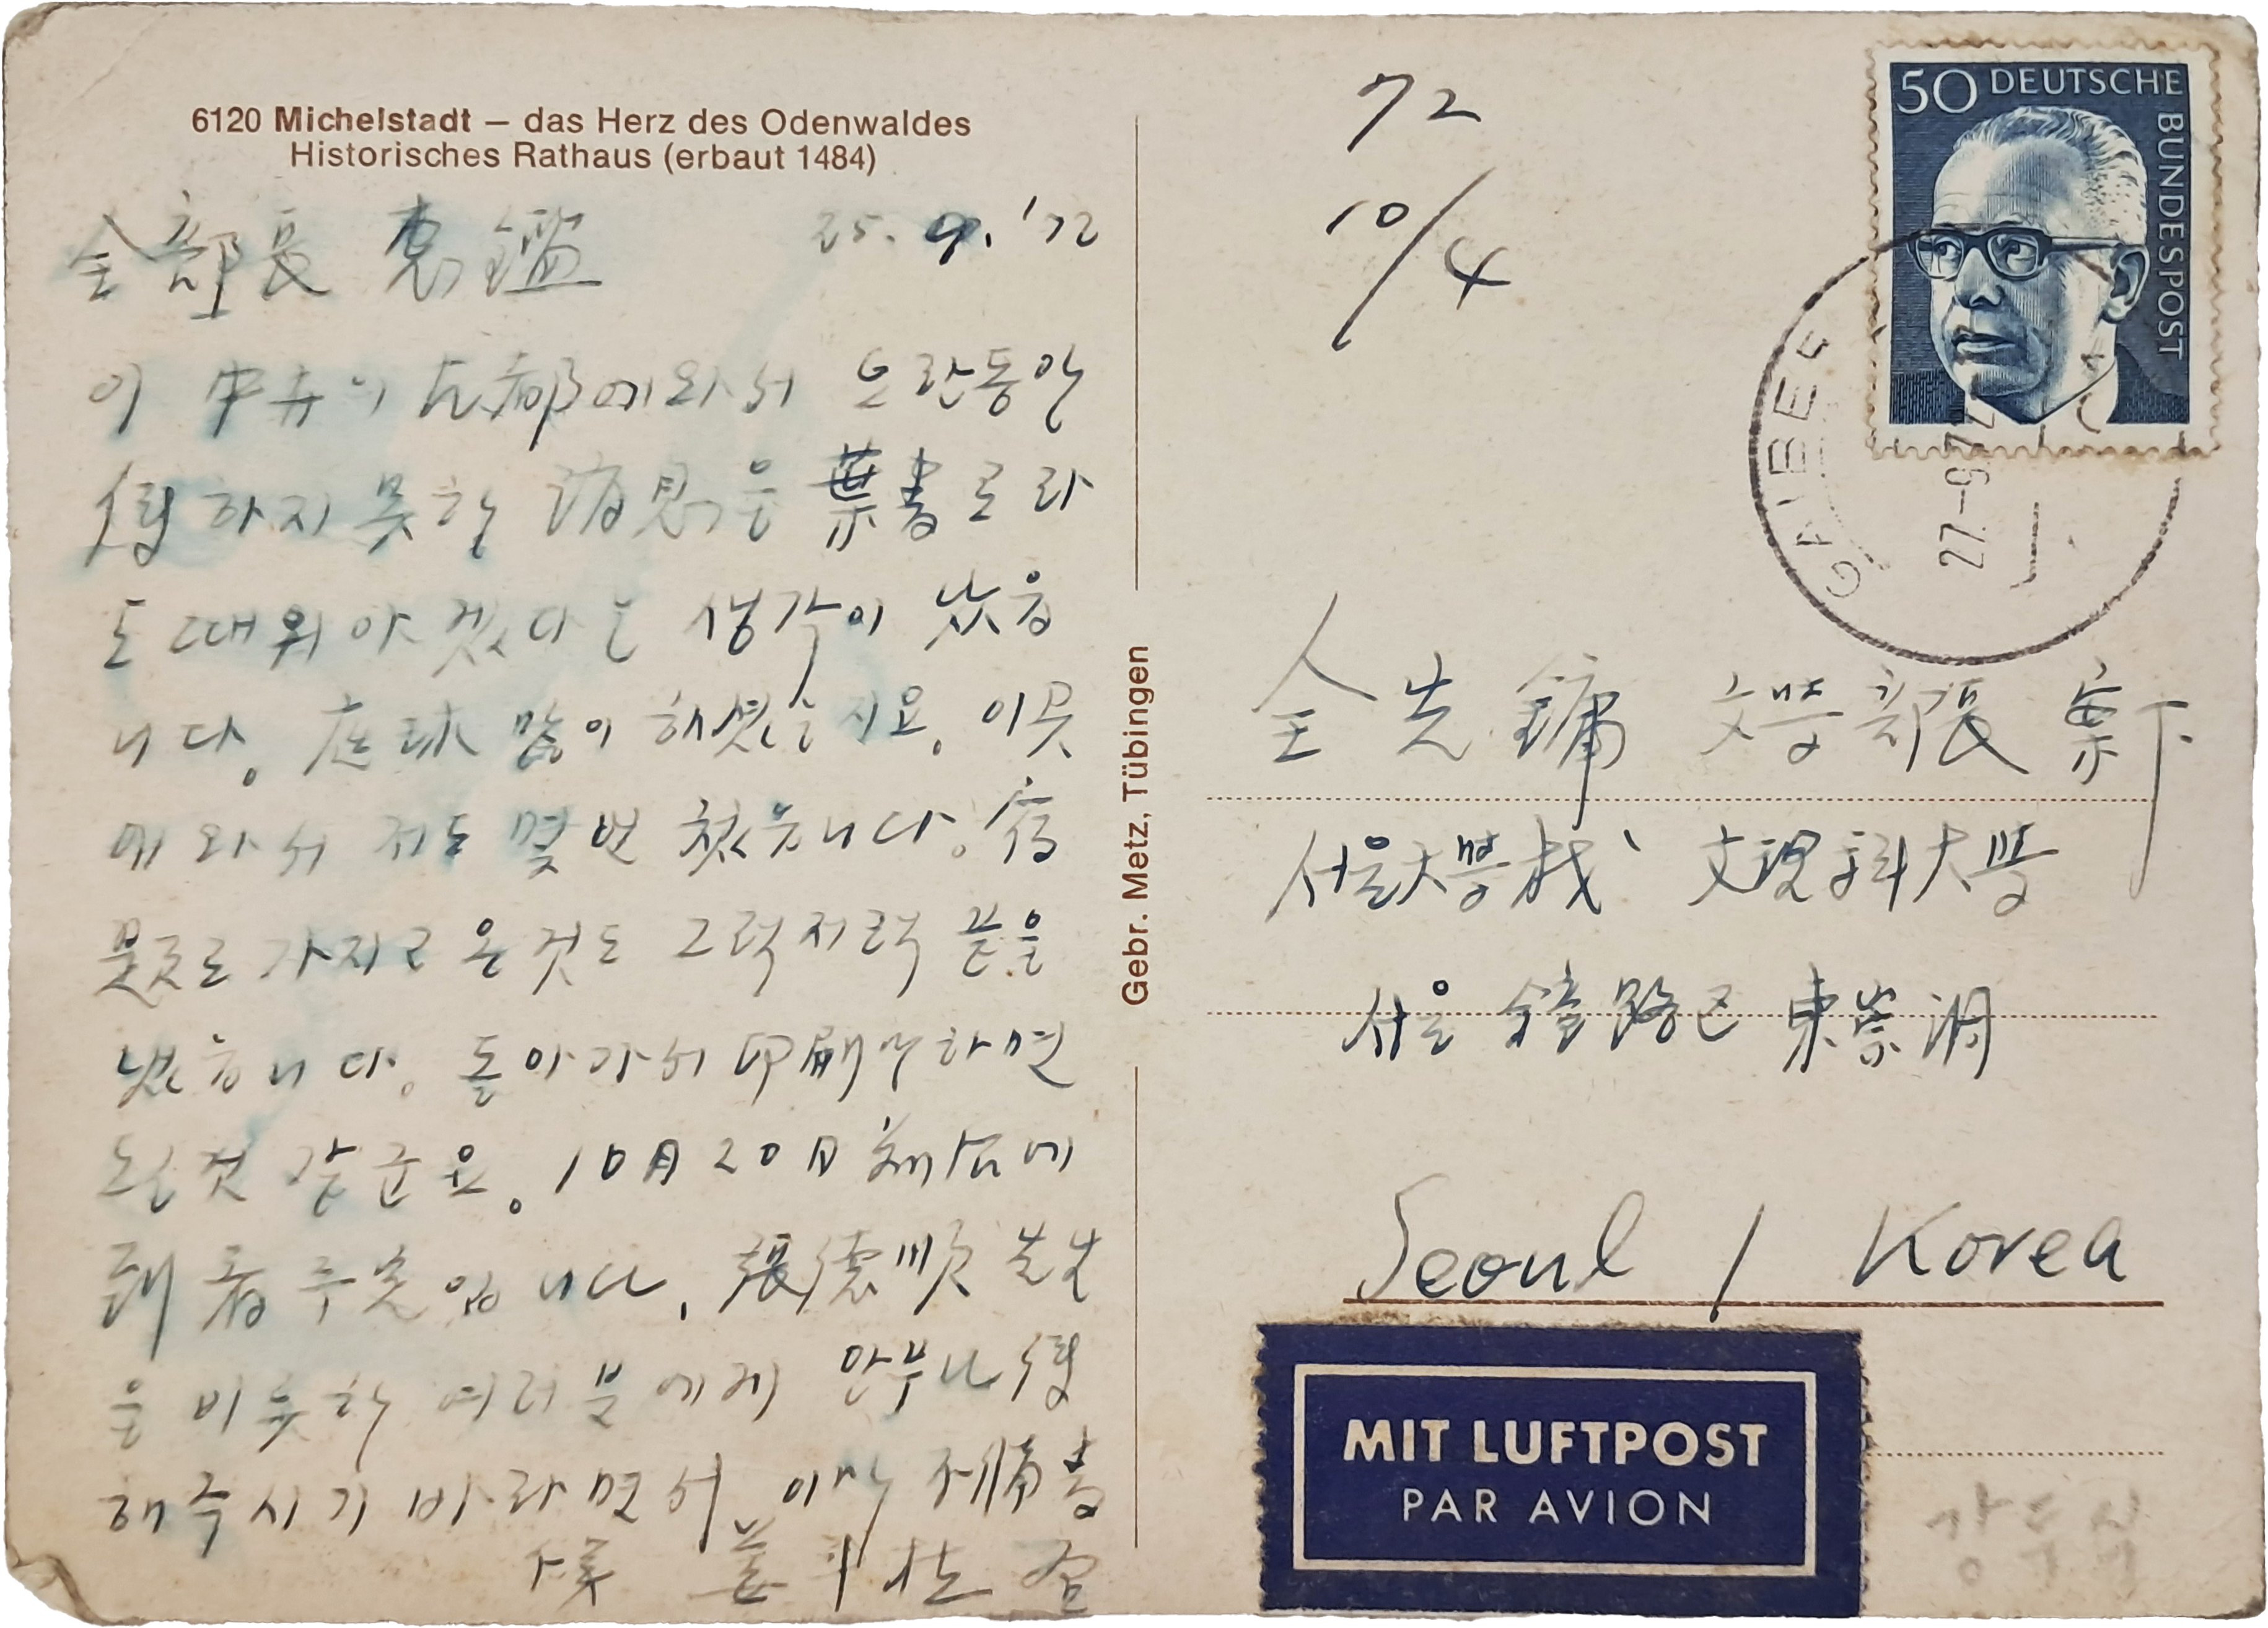 6120 Michelstadt – das Herz des Odenwaldes
Historisches Rathaus (erbaut 1484)
全部長 惠鑑 25. 9. '72
이 中井의 古都에와서 오랜동안
하지못한 을 葉書로라
도 때워야 겠다는 생각이 났읍
니다。 庭球 많이 해셨는지요。 이곳
에와서 저도 몇번 쳤읍니다。 宿
題로 가지고 온것도 그럭저럭 끝을
냈읍니다。 돌아가서 印刷만하면
될것 같군요。 10月 20日 頃에
到着 予定입니다. 張德順 先生
을 비롯한 여러분에게 안부나 傳
해주시기 바라면서 이만 不備書
姜斗植
Gebr. Metz, Tübingen
72
10/4
50 DEUTSCHE BUNDESPOST
27.-9.72
全光鏞 文學部長 案下
서울大學校、文理科大學
서울 鍾路區 東崇洞
Seoul / Korea
MIT LUFTPOST
PAR AVION
강두식